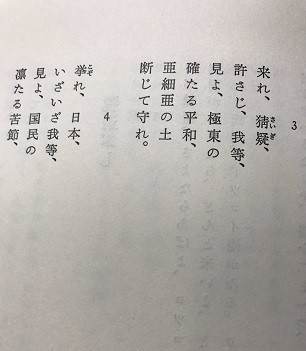 3
来れ、猜疑、
許さじ、我等、
見よ、極東の
確たる平和、
亜細亜の土
断じて守れ。
4
挙れ、日本、
いざいざ我等、
見よ、国民の
凛たる苦節、